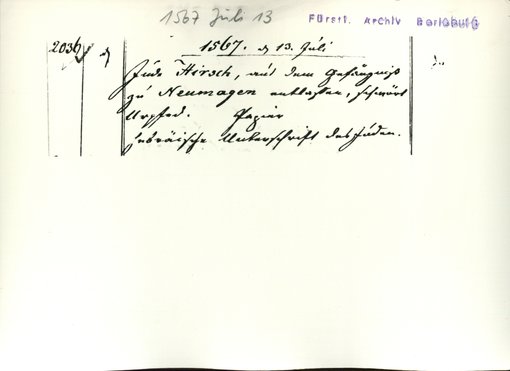 1567 Juli 13
Fürstl. Archiv Berleburg
2036
1567. d 13. Juli
Jude Hirsch, aus dem Gefängniß
zu Neumagen entlassen, schwört
Urphed. Papier
hebräische Unterschrift des Juden.